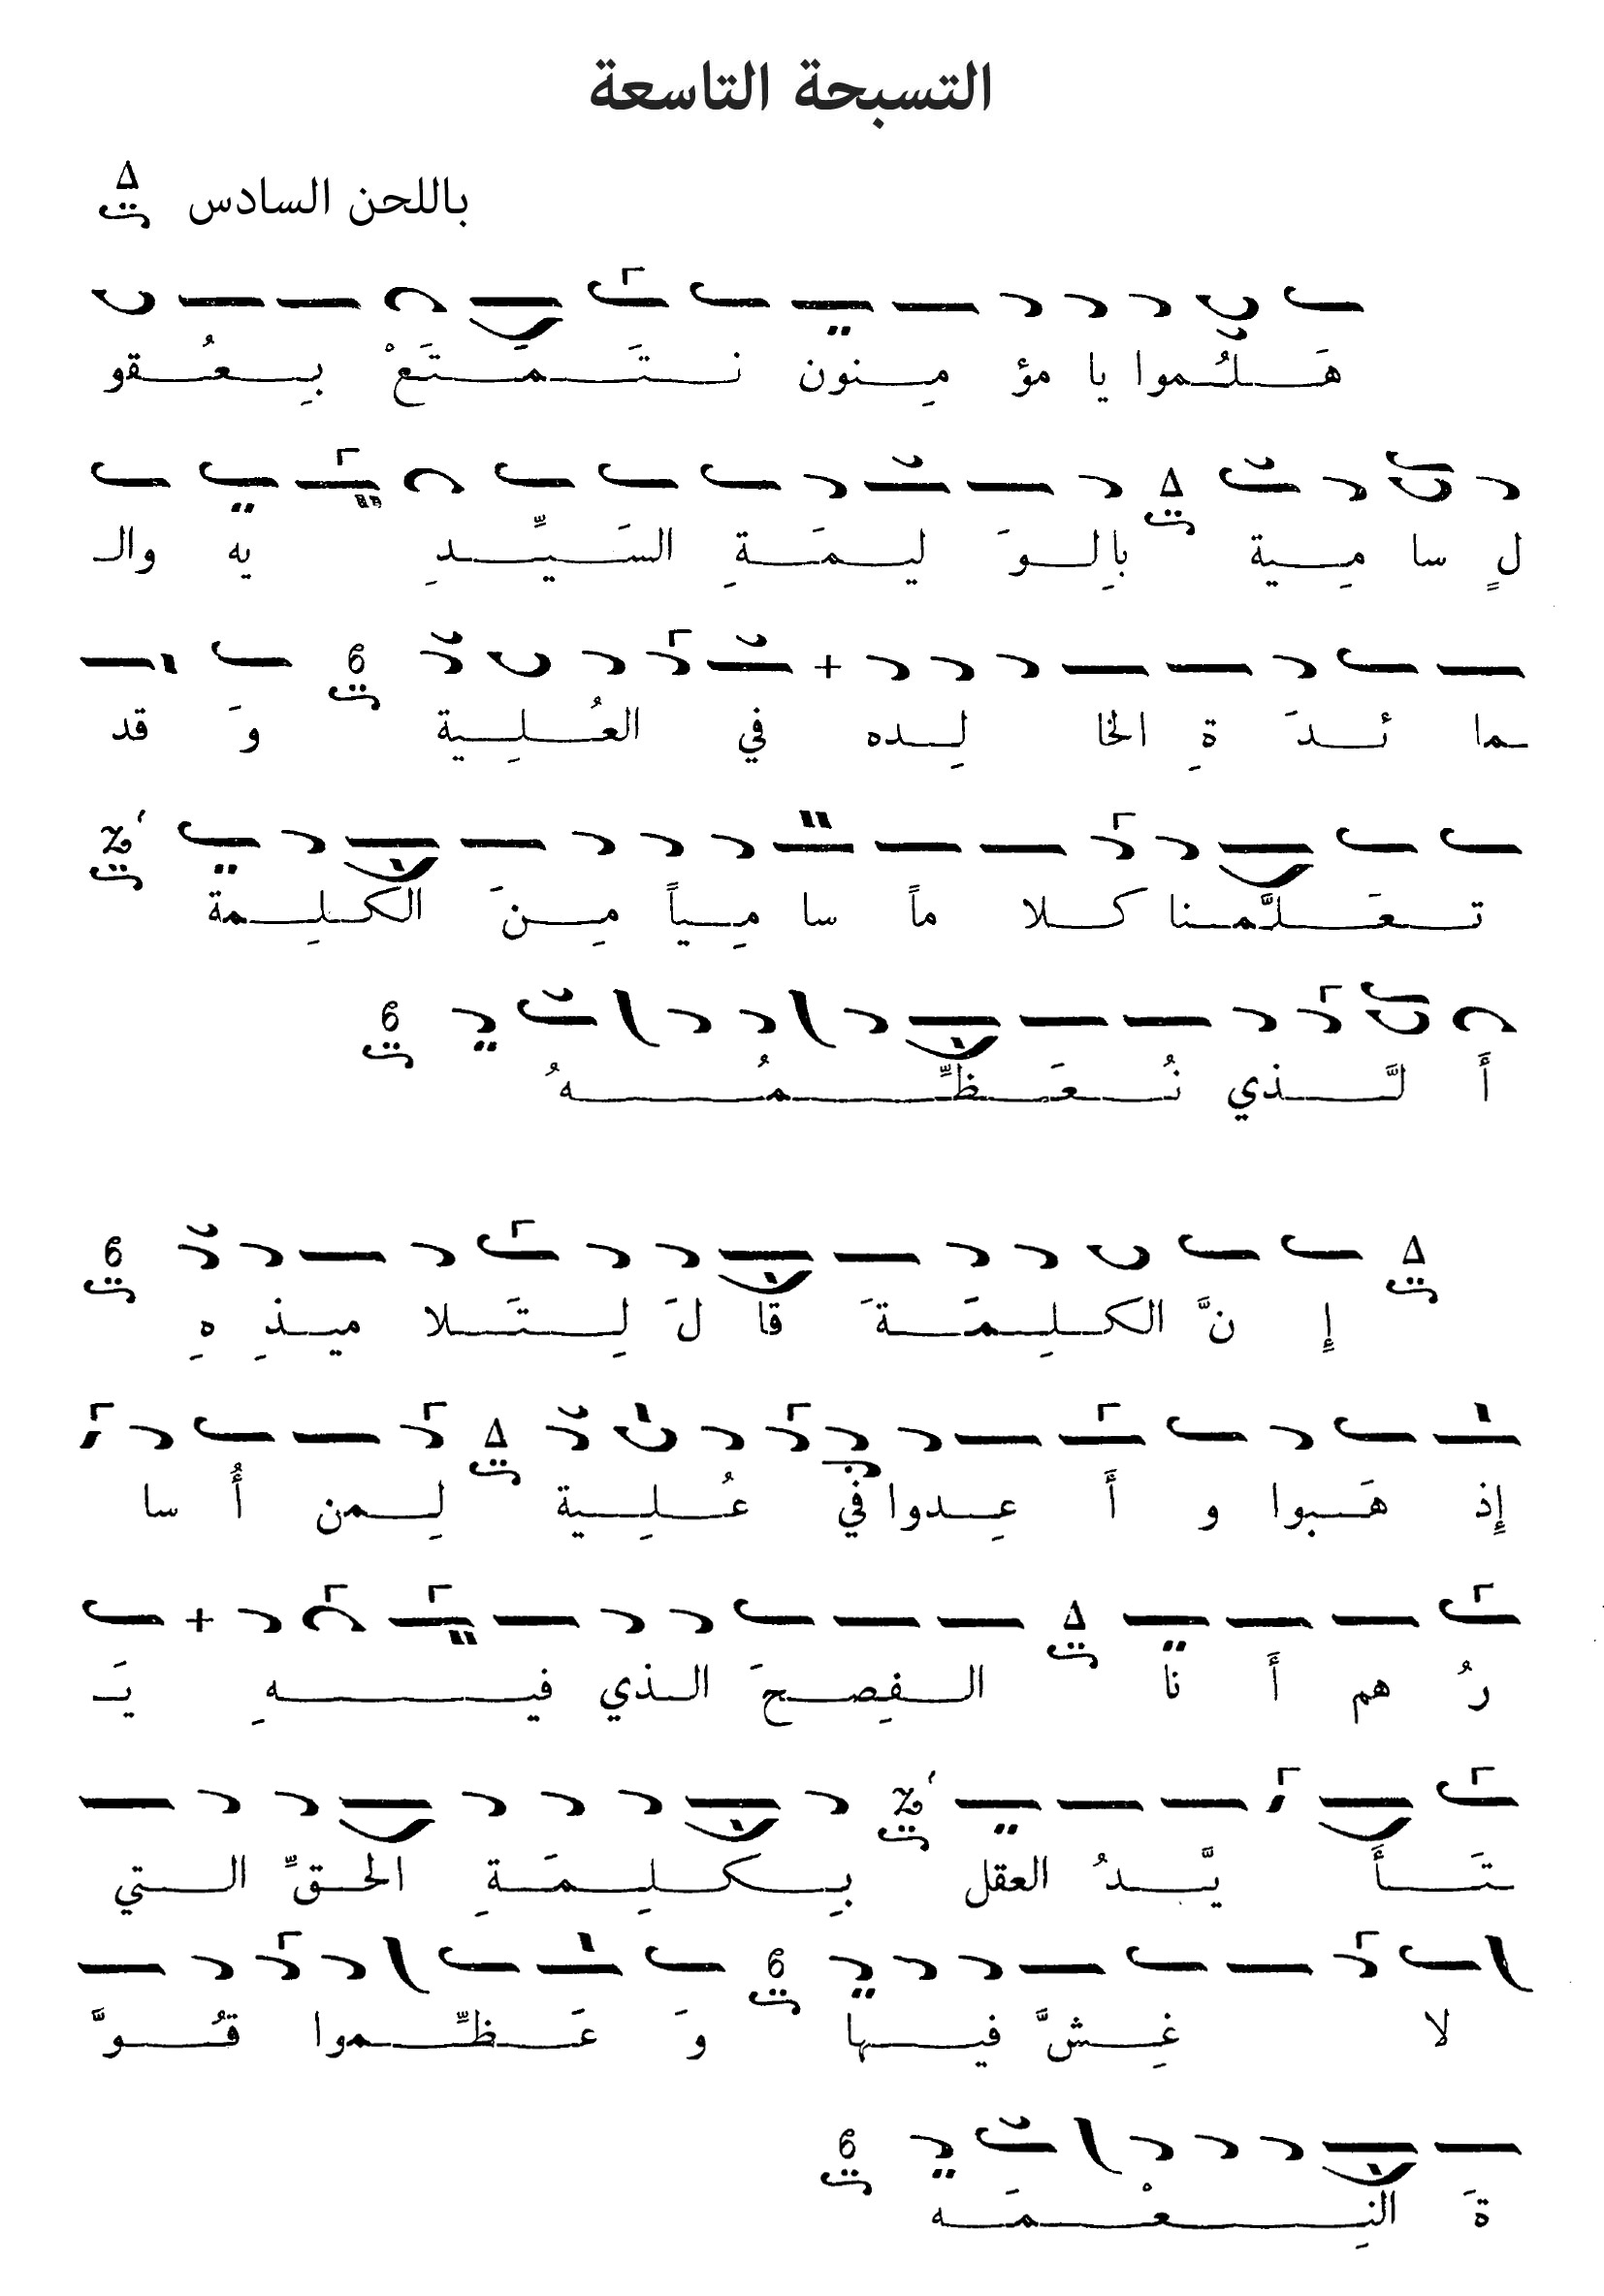 التسبحة التاسعة
باللحن السادس
هَـلـُـموا يا مؤ مِـنون نـتَـمَـتَـعْ بِـعُـقو
لٍ سا مِـية بالِـوَ ليـمَـةِ السَـيِّـدِ يه والـ
ـما ئـدَ ةِ الخا لِـده في العُـلِـية وَ قد
تـعَـلَّـمـنا كـلا ماً سا مِـياً مِـنَ الكـلِـمة
أَ لَّـذي نُـعَـظِّـمُـهُ
إِ نَّ الكـلِـمَـةَ قا لَ لِـتَـلا ميـذِ هِ
إِذ هَـبوا و أَ عِـدوا في عُـلِـية لِـمن أُ سا
رُ هم أَ نا الـفِـصـحَ الـذي فيـهِ يَـ
ـتَـأَ يَّـدُ العقل بِـكـلِـمَـةِ الحـقِّ الـتي
لا غِـشَّ فيـها وَ عَـظِّـموا قُـوَّ
ةَ النِـعْـمَـه